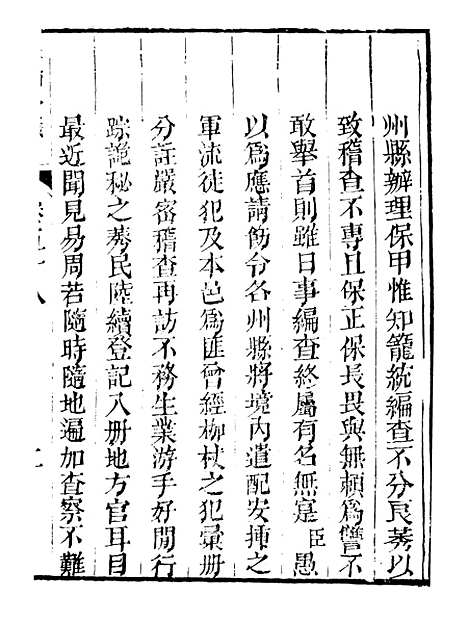 州縣辦理保甲惟知籠統編查不分良莠以
致稽查不專且保正保長畏與無賴爲讐不
敢舉首則雖日事編查終屬有名無寔臣愚
以爲應請飭令各州縣將境内遣配安揷之
軍流徒犯及本邑爲匪曾經枷杖之犯彙册
分註嚴密稽查再訪不務生業游手好閒行
踪詭秘之莠民陸續登記入册地方官耳目
最近聞見易周若隨時隨地遍加查察不難